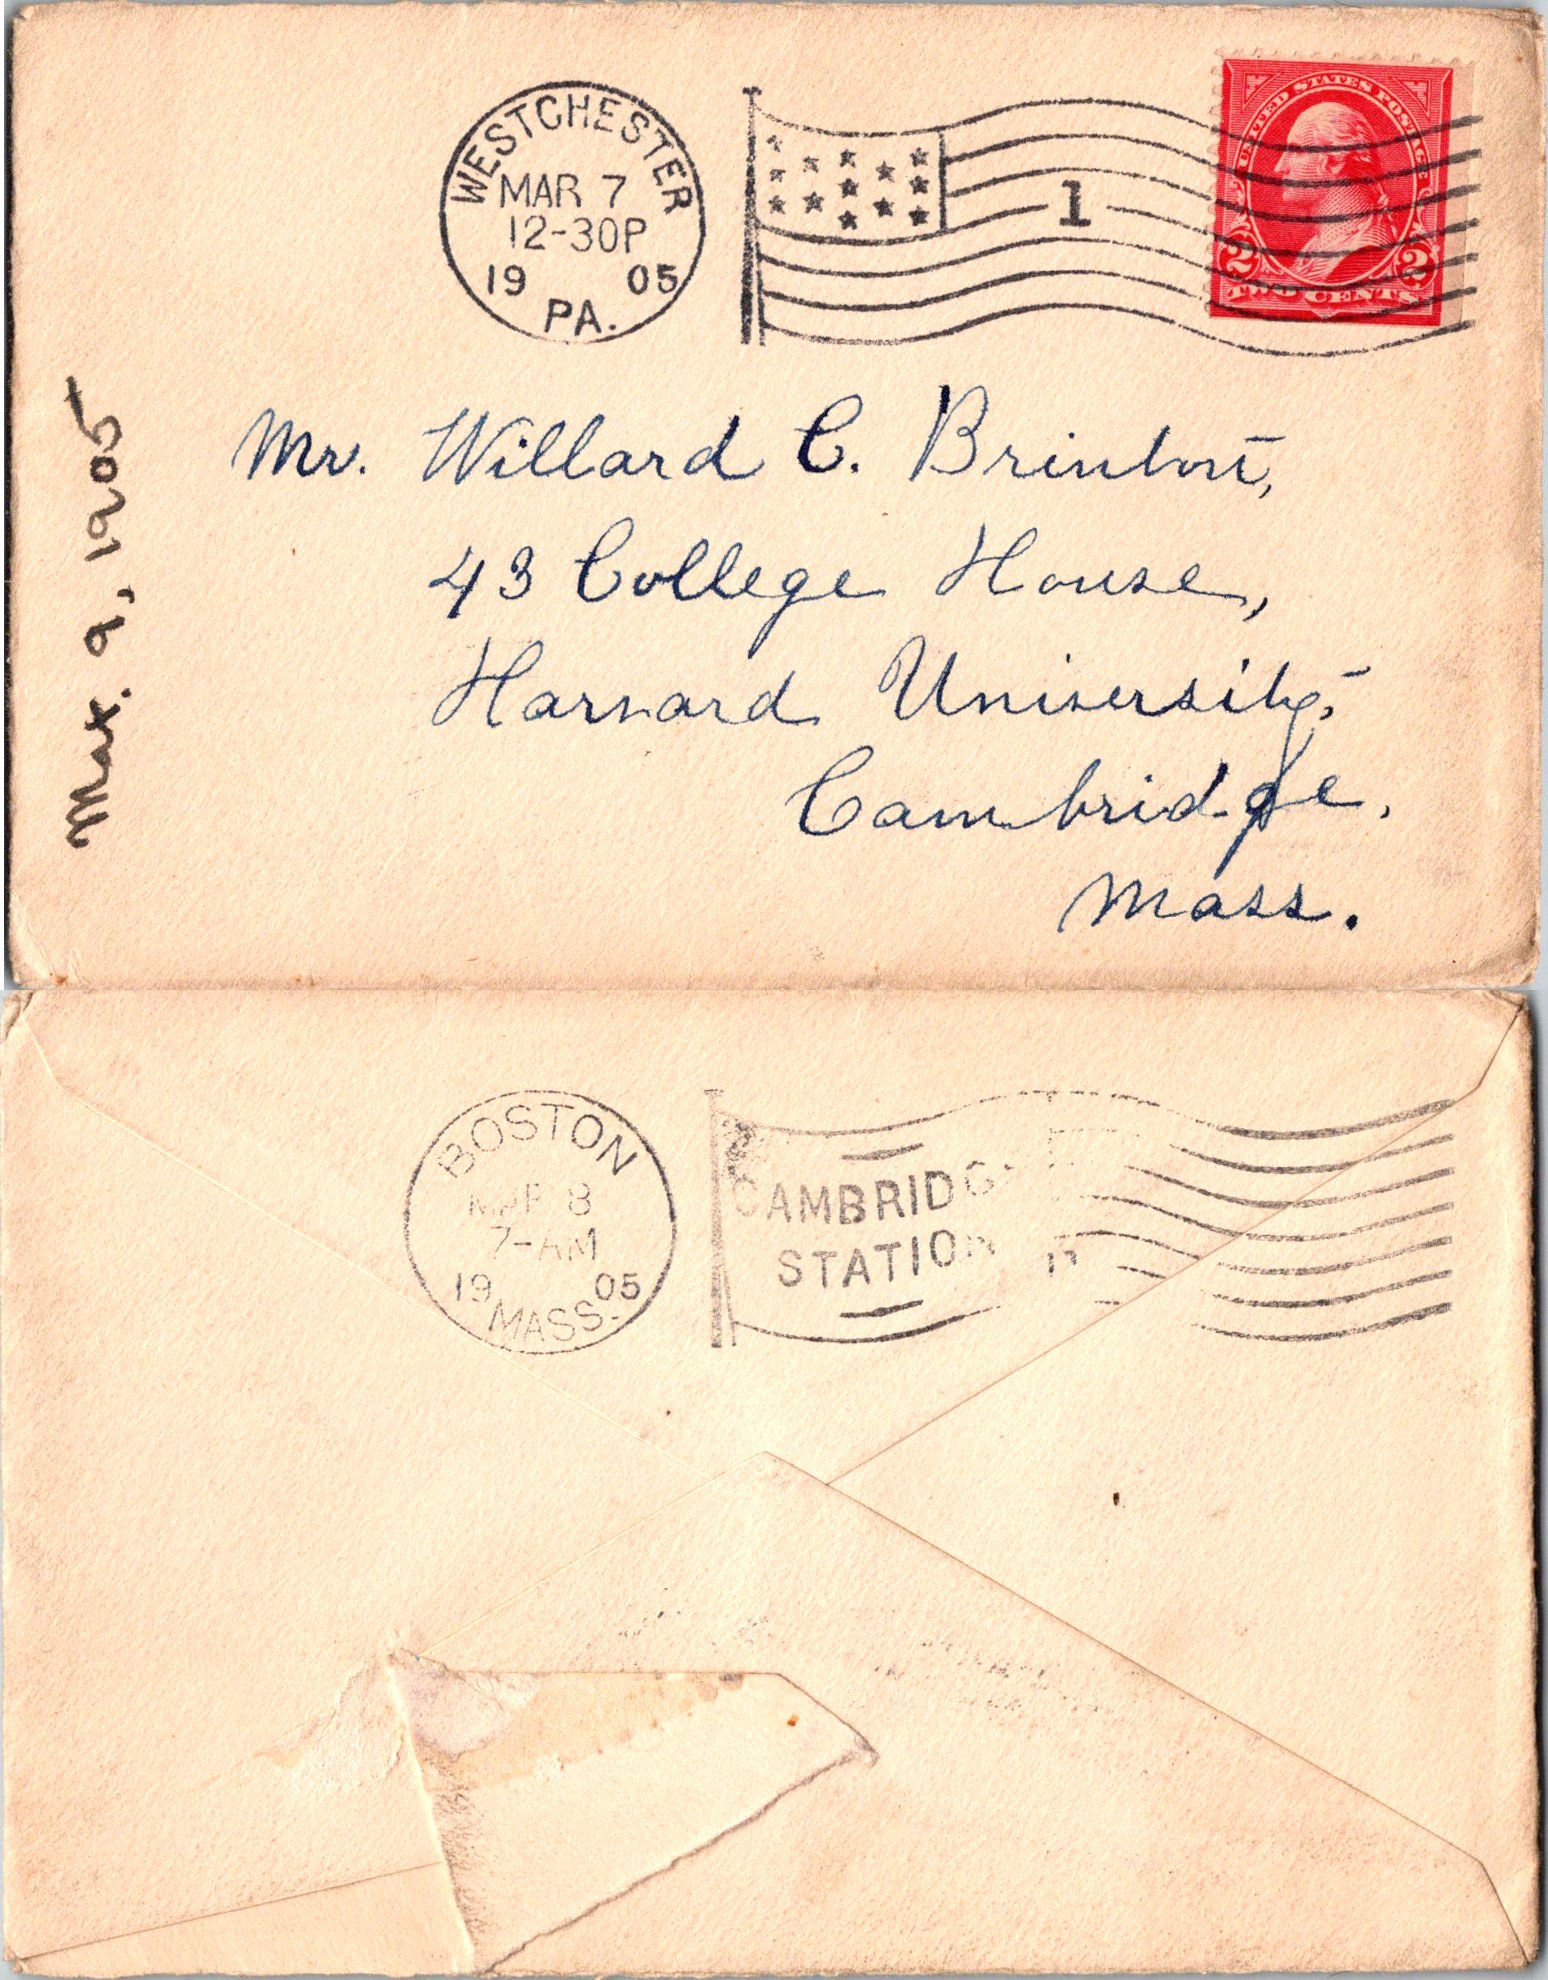 WESTCHESTER
MAR 7
12-30P
19 05
PA.
1
UNITED STATES POSTAGE
2 2
TWO CENTS
Mar. 9, 1905
Mr. Willard C. Brinton,
43 College House,
Harvard University,
Cambridge,
Mass.
BOSTON
MAR 8
7-AM
19 05
MASS.
CAMBRIDGE
STATION